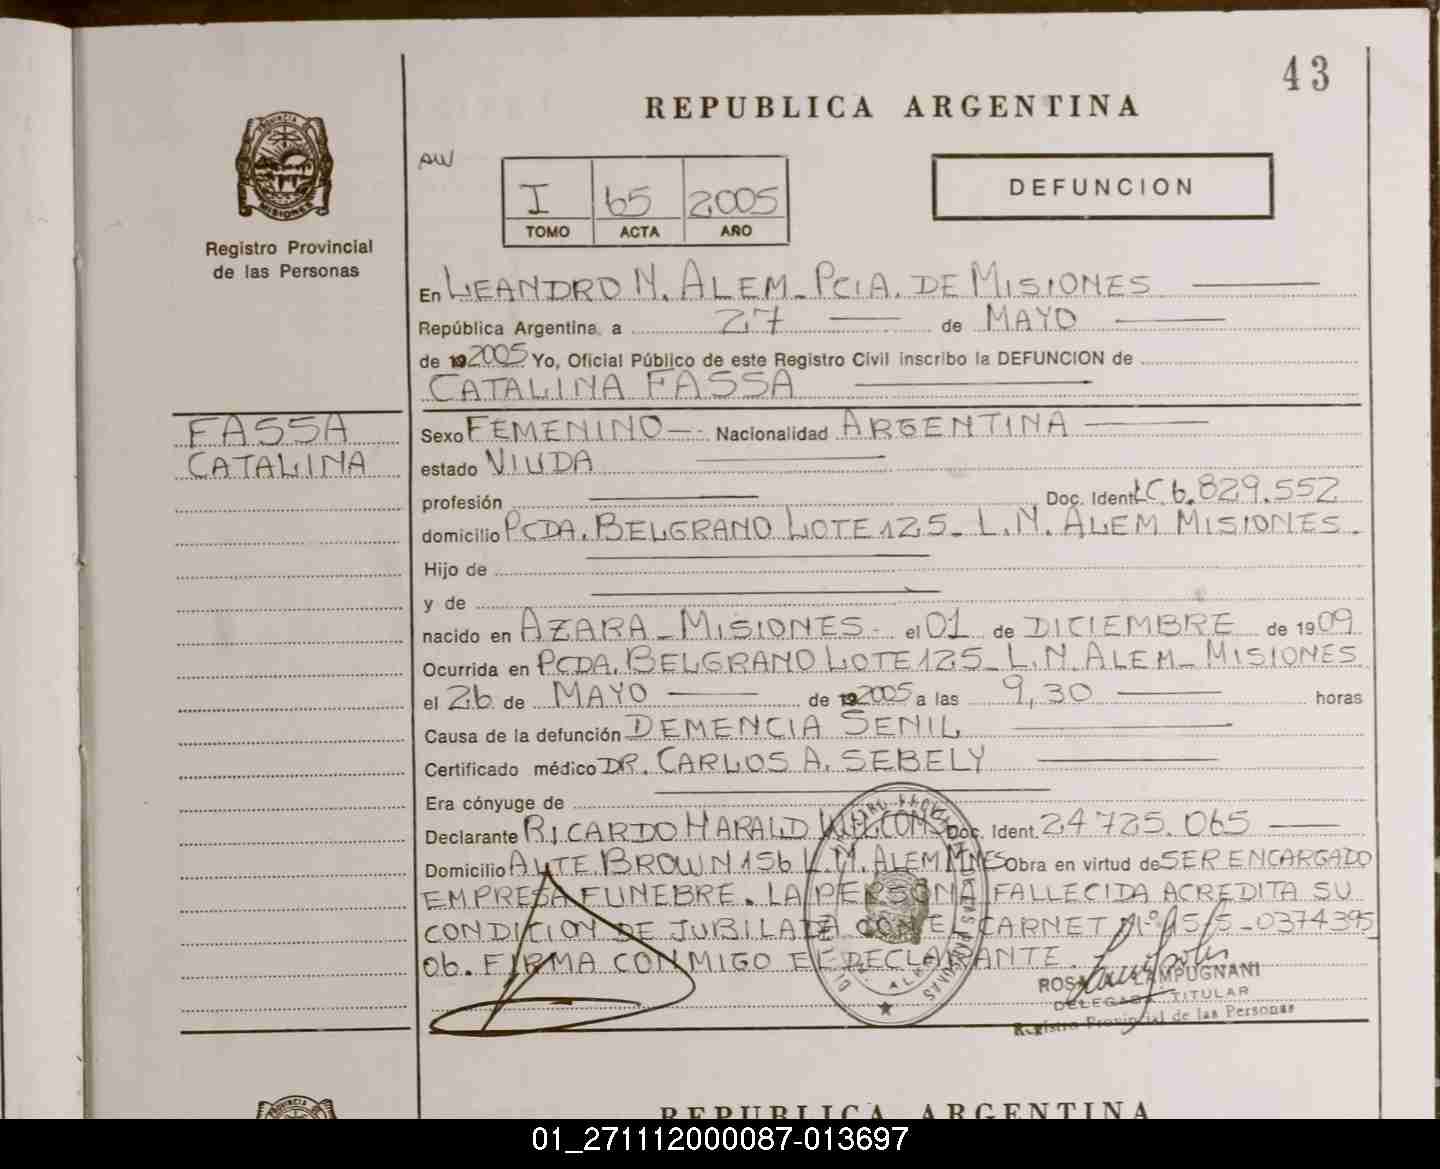 43
REPUBLICA ARGENTINA
PROVINCIA DE
MISIONES
Registro Provincial
de las Personas
AW
I 65 2005
TOMO ACTA AÑO
DEFUNCION
En LEANDRO N. ALEM - PCIA. DE MISIONES
República Argentina, a 27 de MAYO
de 192005 Yo, Oficial Público de este Registro Civil inscribo la DEFUNCION de
CATALINA FASSA
FASSA
CATALINA
Sexo FEMENINO Nacionalidad ARGENTINA
estado VIUDA
profesión Doc. Ident. LC 6.829.552
domicilio PCDA. BELGRANO LOTE 125 - L.N. ALEM MISIONES.
Hijo de
y de
nacido en AZARA - MISIONES - el 01 de DICIEMBRE de 1909
Ocurrida en PCDA. BELGRANO LOTE 125 - L.N. ALEM - MISIONES
el 26 de MAYO de 192005 a las 9,30 horas
Causa de la defunción DEMENCIA SENIL
Certificado médico DR. CARLOS A. SEBELY
Era cónyuge de
Declarante RICARDO HARALD Doc. Ident. 24725.065
Domicilio ALTE. BROWN 156 L.N. ALEM MNES Obra en virtud de SER ENCARGADO
EMPRESA FUNEBRE. LA PERSONA FALLECIDA ACREDITA SU
CONDICION DE JUBILADA CON EL CARNET Nº 15/5-0374395
06. FIRMA CONMIGO EL DECLARANTE.
LAMPUGNANI
DELEGADA TITULAR
Registro Provincial de las Personas
REPUBLICA ARGENTINA
01_271112000087-013697